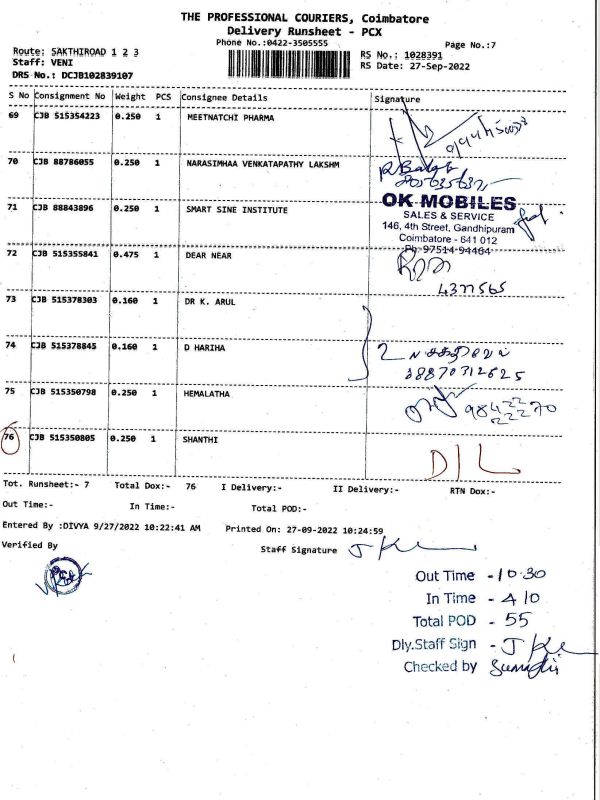 THE PROFESSIONAL COURIERS, Coimbatore
Delivery Runsheet - PCX
Phone No.:0422-3505555
Page No.:7
Route: SAKTHIROAD 1 2 3
Staff: VENI
DRS No.: DCJB102839107
RS No.: 1028391
RS Date: 27-Sep-2022
S No Consignment No Weight PCS Consignee Details Signature
69 CJB 515354223 0.250 1 MEETNATCHI PHARMA
70 CJB 88786055 0.250 1 NARASIMHAA VENKATAPATHY LAKSHM
71 CJB 88843896 0.250 1 SMART SINE INSTITUTE
OK MOBILES
SALES & SERVICE
146, 4th Street, Gandhipuram
Coimbatore - 641 012
Ph 97514 94464
72 CJB 515355841 0.475 1 DEAR NEAR
4377565
73 CJB 515378303 0.160 1 DR K. ARUL
74 CJB 515378845 0.160 1 D HARIHA
75 CJB 515350798 0.250 1 HEMALATHA
76 CJB 515350805 0.250 1 SHANTHI
D/L
Tot. Runsheet:- 7 Total Dox:- 76 I Delivery:- II Delivery:- RTN Dox:-
Out Time:- In Time:- Total POD:-
Entered By :DIVYA 9/27/2022 10:22:41 AM Printed On: 27-09-2022 10:24:59
Verified By
Staff Signature
Out Time - 10.30
In Time - 4 10
Total POD - 55
Dly.Staff Sign -
Checked by